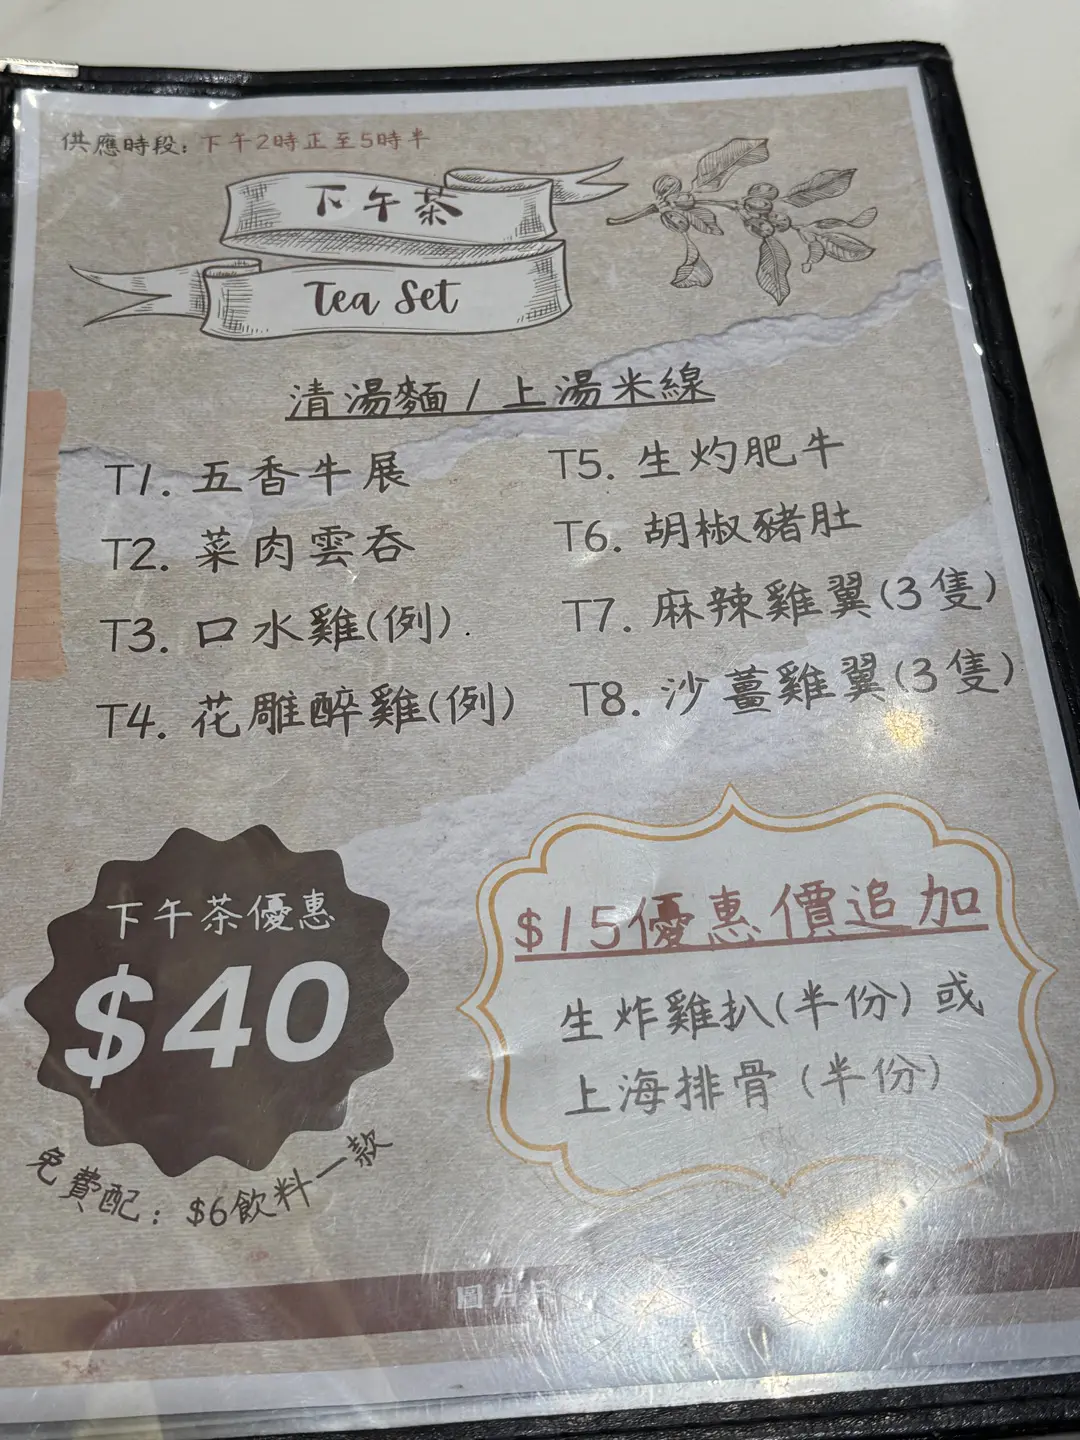 供應時段: 下午2時正至5時半
下午茶
Tea Set
清湯麵 / 上湯米線
T1. 五香牛展
T2. 菜肉雲吞
T3. 口水雞(例).
T4. 花雕醉雞(例)
T5. 生灼肥牛
T6. 胡椒豬肚
T7. 麻辣雞翼(3隻)
T8. 沙薑雞翼(3隻)
下午茶優惠
$40
免費配: $6飲料一款
$15優惠價追加
生炸雞扒(半份) 或
上海排骨 (半份)
圖片